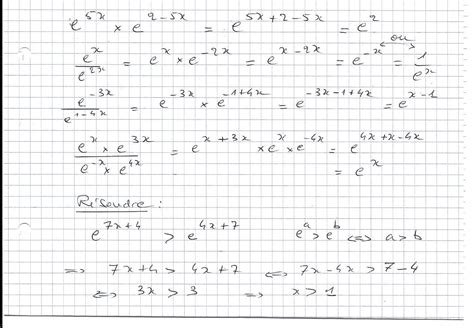 e^{5x} × e^{2-5x} = e^{5x+2-5x} = e^2
e^x / e^{2x} = e^x × e^{-2x} = e^{x-2x} = e^{-x} ou = 1 / e^x
e^{-3x} / e^{1-4x} = e^{-3x} × e^{-1+4x} = e^{-3x-1+4x} = e^{x-1}
(e^x × e^{3x}) / (e^{-x} × e^{4x}) = e^{x+3x} × e^x × e^{-4x} = e^{4x+x-4x}
= e^x
Résoudre :
e^{7x+4} > e^{4x+7} e^a > e^b ⟺ a > b
⟹ 7x+4 > 4x+7 ⟺ 7x-4x > 7-4
⟺ 3x > 3 ⟹ x > 1